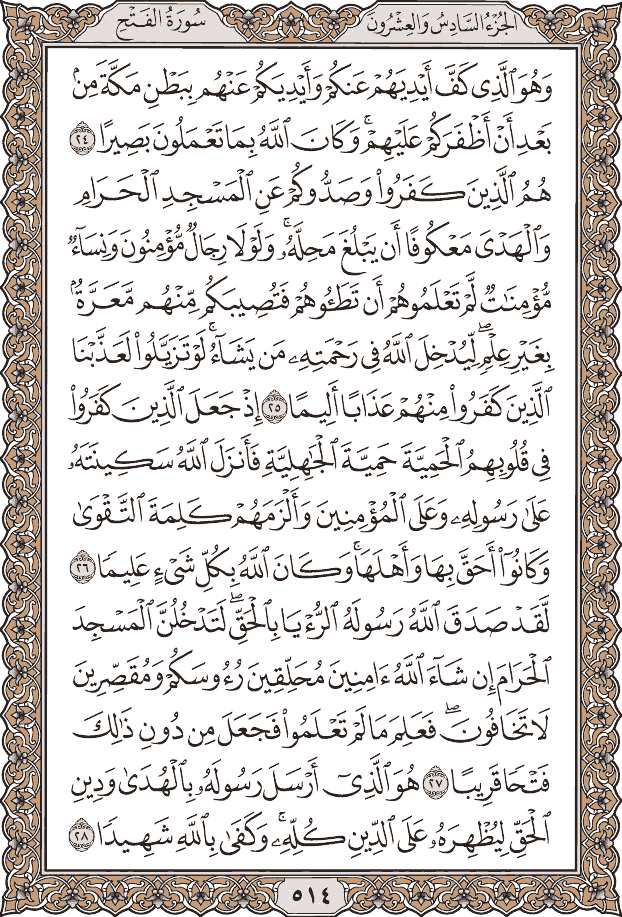 سُورَةُ الفَتْحِ
الجُزْءُ السَّادِسُ وَالعِشْرُونَ
وَهُوَ ٱلَّذِي كَفَّ أَيۡدِيَهُمۡ عَنكُمۡ وَأَيۡدِيَكُمۡ عَنۡهُم بِبَطۡنِ مَكَّةَ مِنۢ
بَعۡدِ أَنۡ أَظۡفَرَكُمۡ عَلَيۡهِمۡۚ وَكَانَ ٱللَّهُ بِمَا تَعۡمَلُونَ بَصِيرًا ٢٤
هُمُ ٱلَّذِينَ كَفَرُواْ وَصَدُّوكُمۡ عَنِ ٱلۡمَسۡجِدِ ٱلۡحَرَامِ
وَٱلۡهَدۡيَ مَعۡكُوفًا أَن يَبۡلُغَ مَحِلَّهُۥۚ وَلَوۡلَا رِجَالٞ مُّؤۡمِنُونَ وَنِسَآءٞ
مُّؤۡمِنَٰتٞ لَّمۡ تَعۡلَمُوهُمۡ أَن تَطَـُٔوهُمۡ فَتُصِيبَكُم مِّنۡهُم مَّعَرَّةُۢ
بِغَيۡرِ عِلۡمٖۖ لِّيُدۡخِلَ ٱللَّهُ فِي رَحۡمَتِهِۦ مَن يَشَآءُۚ لَوۡ تَزَيَّلُواْ لَعَذَّبۡنَا
ٱلَّذِينَ كَفَرُواْ مِنۡهُمۡ عَذَابًا أَلِيمًا ٢٥ إِذۡ جَعَلَ ٱلَّذِينَ كَفَرُواْ
فِي قُلُوبِهِمُ ٱلۡحَمِيَّةَ حَمِيَّةَ ٱلۡجَٰهِلِيَّةِ فَأَنزَلَ ٱللَّهُ سَكِينَتَهُۥ
عَلَىٰ رَسُولِهِۦ وَعَلَى ٱلۡمُؤۡمِنِينَ وَأَلۡزَمَهُمۡ كَلِمَةَ ٱلتَّقۡوَىٰ
وَكَانُوٓاْ أَحَقَّ بِهَا وَأَهۡلَهَاۚ وَكَانَ ٱللَّهُ بِكُلِّ شَيۡءٍ عَلِيمٗا ٢٦
لَّقَدۡ صَدَقَ ٱللَّهُ رَسُولَهُ ٱلرُّءۡيَا بِٱلۡحَقِّۖ لَتَدۡخُلُنَّ ٱلۡمَسۡجِدَ
ٱلۡحَرَامَ إِن شَآءَ ٱللَّهُ ءَامِنِينَ مُحَلِّقِينَ رُءُوسَكُمۡ وَمُقَصِّرِينَ
لَا تَخَافُونَۖ فَعَلِمَ مَا لَمۡ تَعۡلَمُواْ فَجَعَلَ مِن دُونِ ذَٰلِكَ
فَتۡحٗا قَرِيبًا ٢٧ هُوَ ٱلَّذِيٓ أَرۡسَلَ رَسُولَهُۥ بِٱلۡهُدَىٰ وَدِينِ
ٱلۡحَقِّ لِيُظۡهِرَهُۥ عَلَى ٱلدِّينِ كُلِّهِۦۚ وَكَفَىٰ بِٱللَّهِ شَهِيدٗا ٢٨
٥١٤